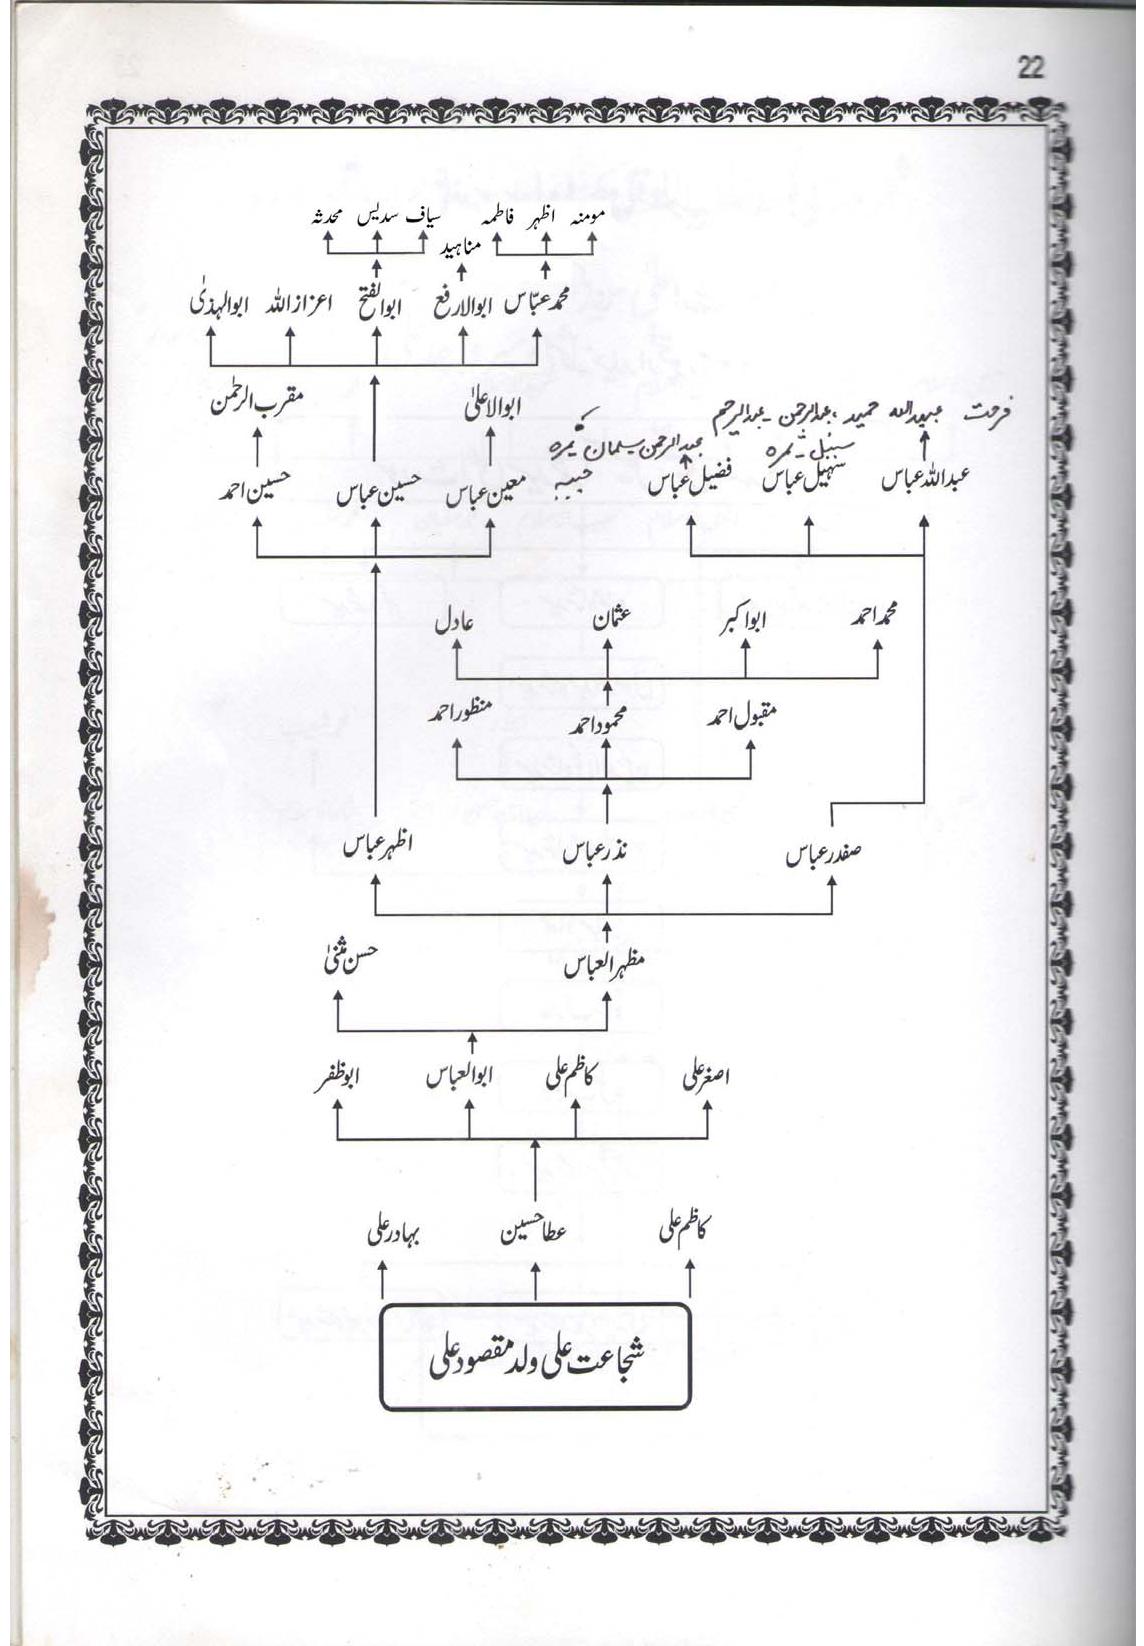 22
مومنہ اظہر فاطمہ سیاف سدیس محدثہ
مناہید
محمد عباس ابوالارفع ابوالفتح اعزاز اللہ ابوالہدیٰ
ابوالاعلیٰ مقرب الرحمٰن
فرحت عبیداللہ حمید عبدالرحمن - عبدالرحیم
سنبل ثمرہ عبدالرحمن سلمان
عبداللہ عباس سہیل عباس فضیل عباس حبیبہ معین عباس حسین عباس حسین احمد
محمد احمد ابواکبر عثمان عادل
مقبول احمد محمود احمد منظور احمد
صفدر عباس نذر عباس اظہر عباس
مظہر العباس حسن مثنیٰ
اصغر علی کاظم علی ابوالعباس ابوظفر
کاظم علی عطا حسین بہادر علی
شجاعت علی ولد مقصود علی